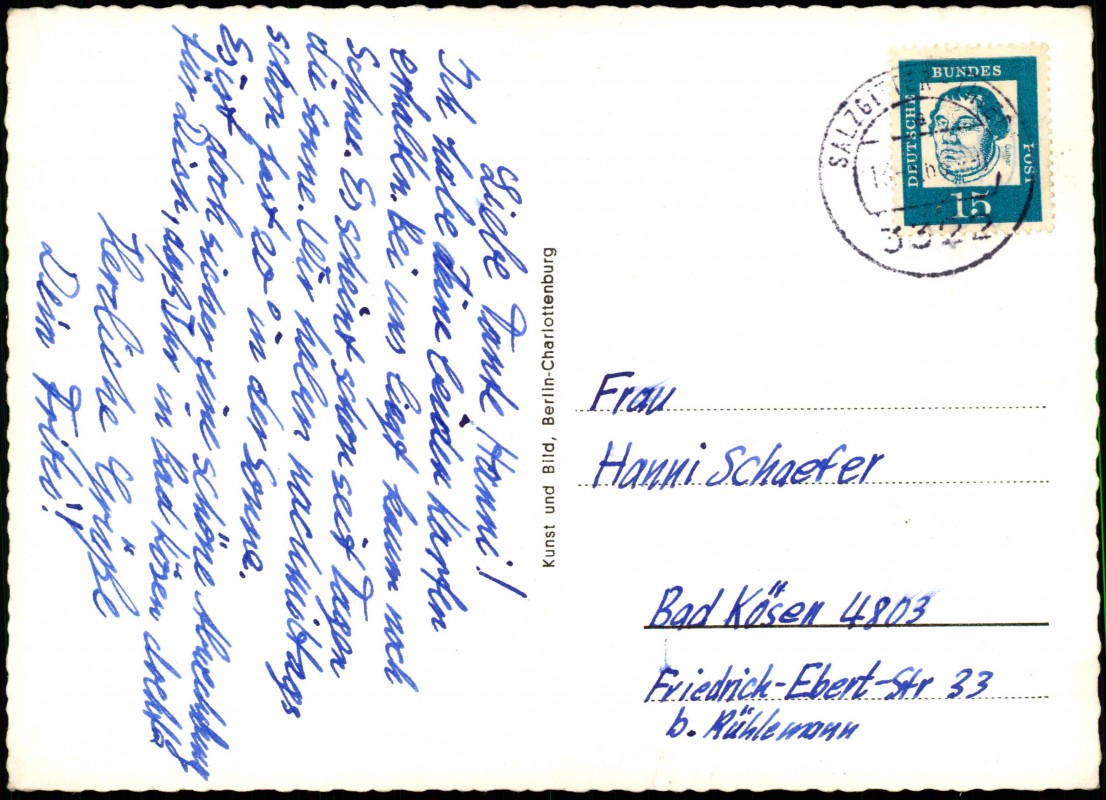 Liebe Tante Hanni!
Ich habe Deine beiden Karten
erhalten. Bei uns liegt kaum noch
Schnee. Es scheint schon seit Tagen
die Sonne. Wir haben nachmittags
schon fast 20° in der Sonne.
Es ist doch sicher eine schöne Abwechslung
für Dich, daß Du in Bad Kösen
Herzliche Grüße
Dein
Kunst und Bild, Berlin-Charlottenburg
DEUTSCHE BUNDES POST
15
3322
Frau
Hanni Schaefer
Bad Kösen 4803
Friedrich-Ebert-Str 33
b. Rühlemann